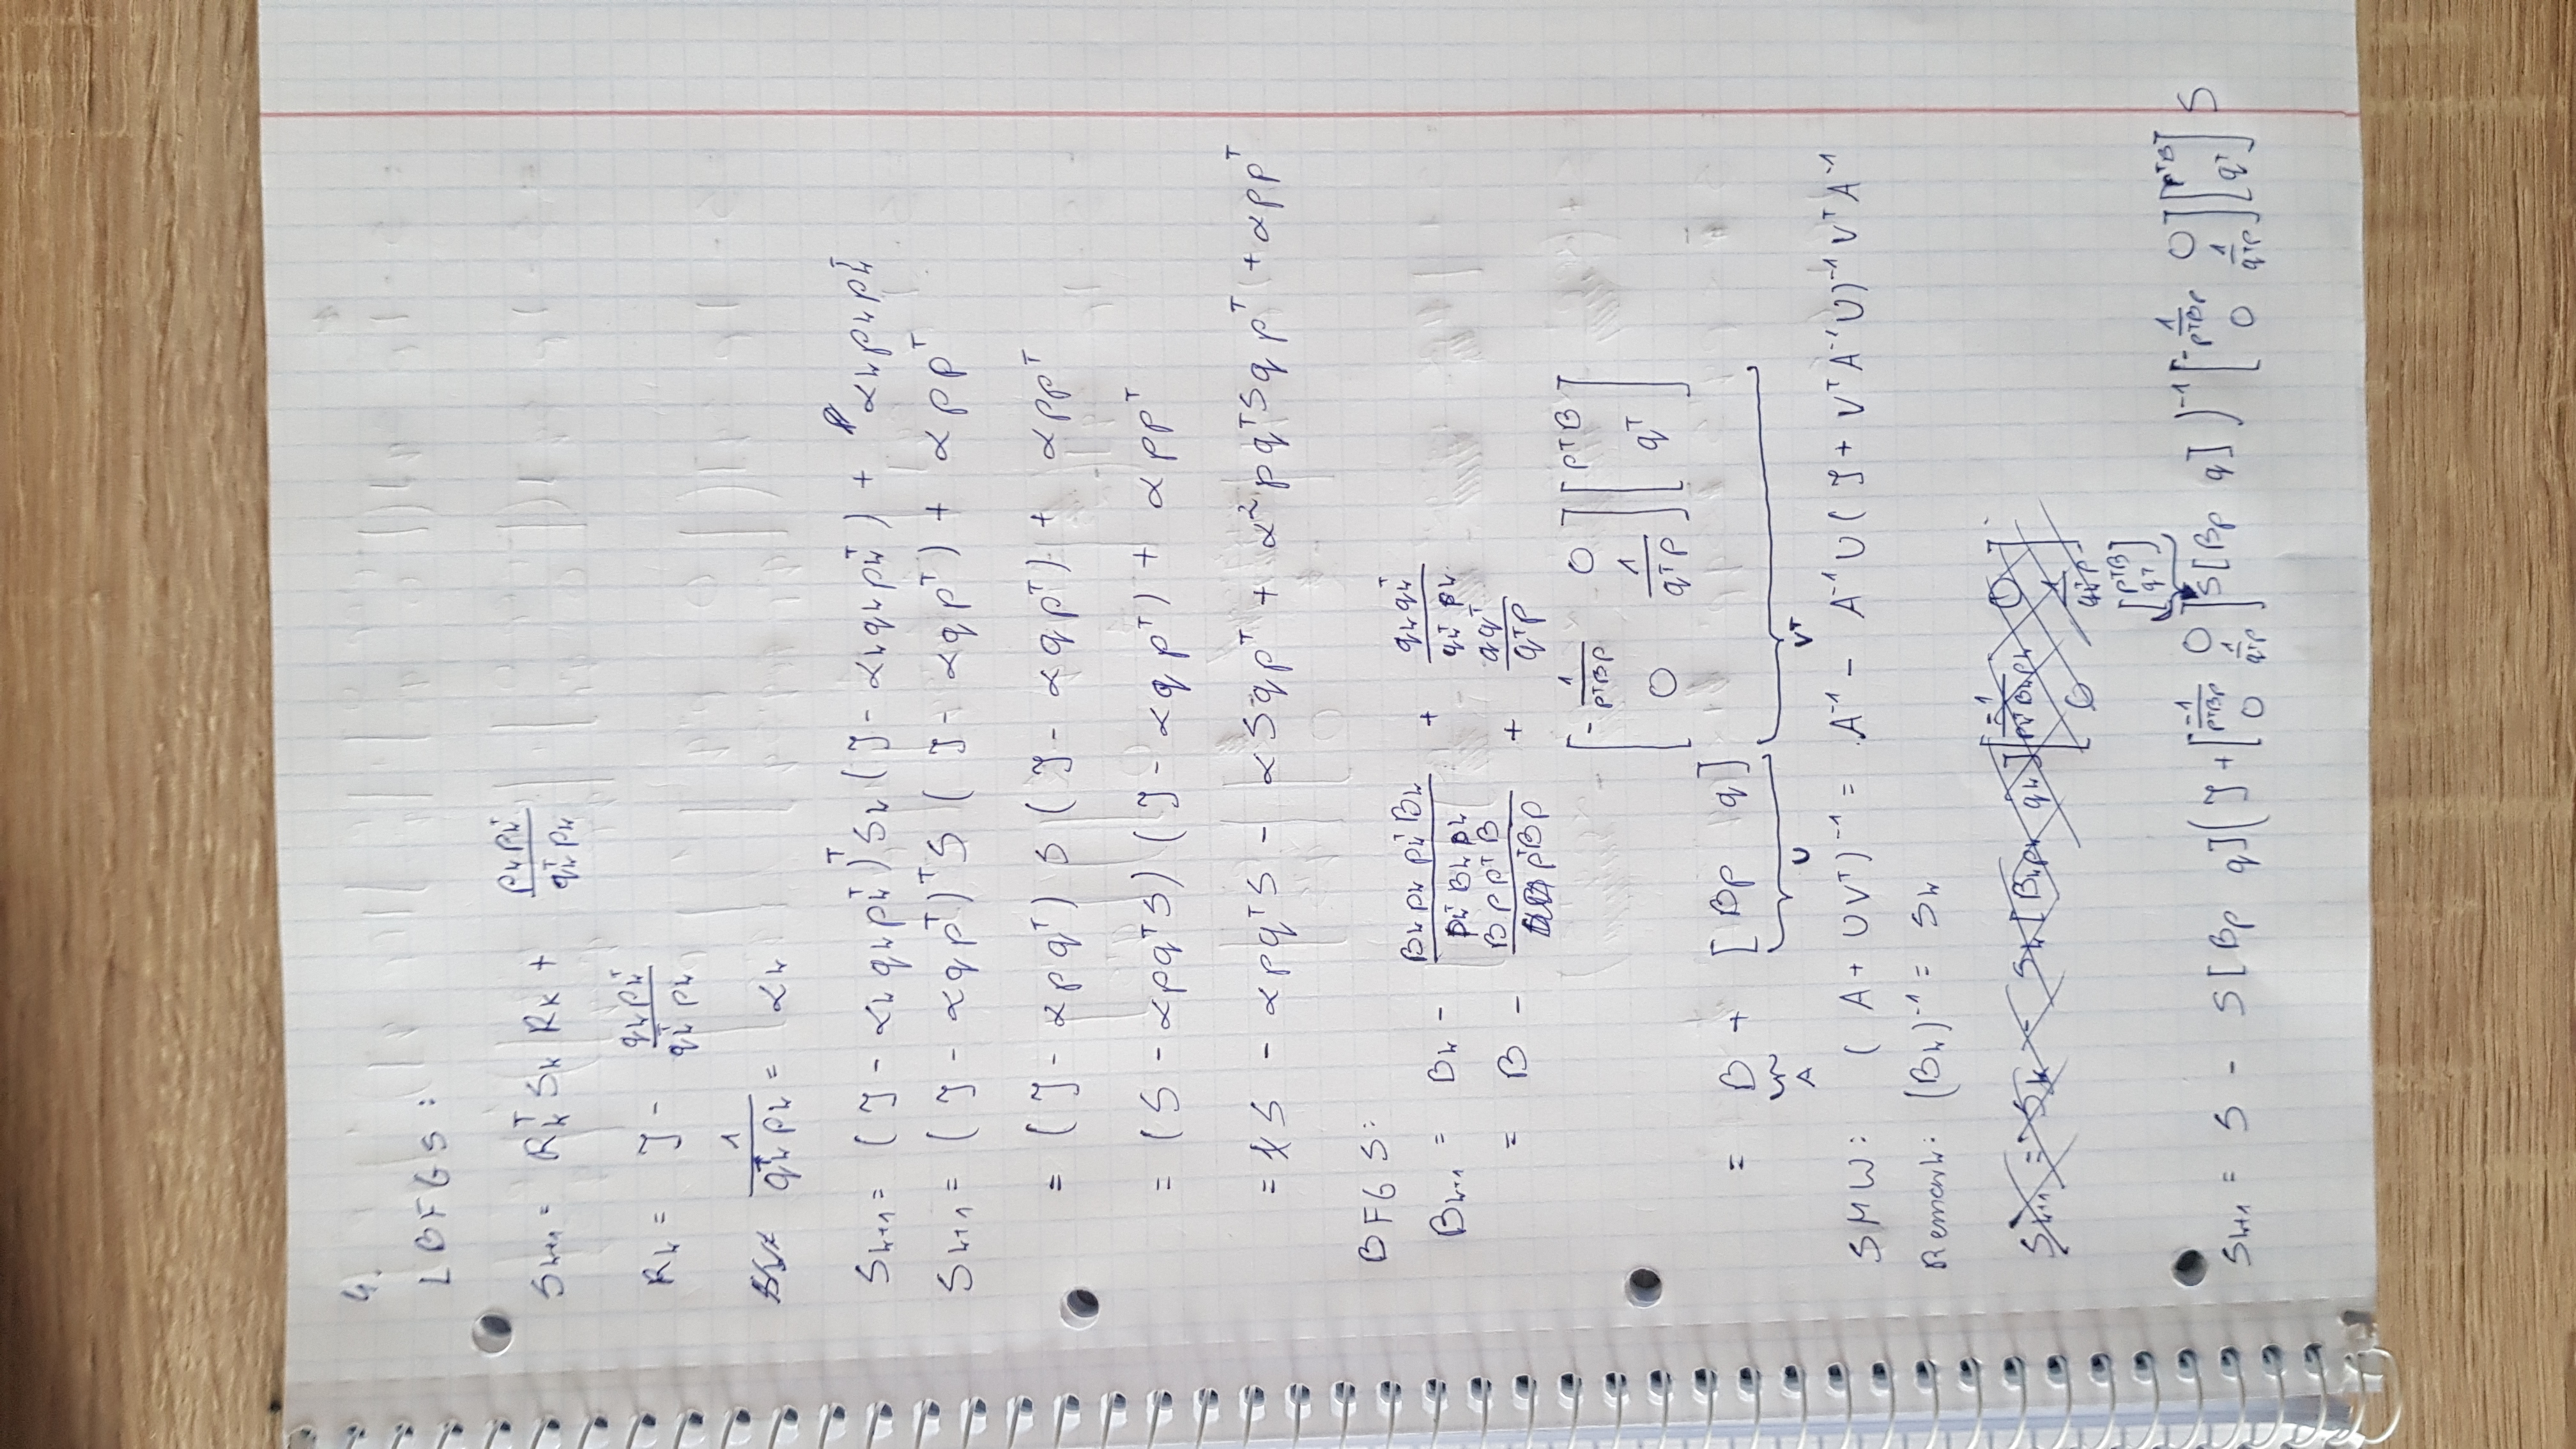 4.
LBFGS:
S_{k+1} = R_k^T S_k R_k + \frac{p_k p_k^T}{q_k^T p_k}
R_k = I - \frac{q_k p_k^T}{q_k^T p_k}
\frac{1}{q_k^T p_k} = α_k
S_{k+1} = (I - α_k q_k p_k^T)^T S_k (I - α_k q_k p_k^T) + α_k p_k p_k^T
S_{k+1} = (I - α q p^T)^T S (I - α q p^T) + α p p^T
= (I - α p q^T) S (I - α q p^T) + α p p^T
= (S - α p q^T S) (I - α q p^T) + α p p^T
= S - α p q^T S - α S q p^T + α^2 p q^T S q p^T + α p p^T
BFGS:
B_{k+1} = B_k - \frac{B_k p_k p_k^T B_k}{p_k^T B_k p_k} + \frac{q_k q_k^T}{q_k^T p_k}
= B - \frac{B p p^T B}{p^T B p} + \frac{q q^T}{q^T p}
= \underbrace{B}_{A} + \underbrace{[Bp \quad q]}_{U} \underbrace{\begin{bmatrix} -\frac{1}{p^T B p} & 0 \\ 0 & \frac{1}{q^T p} \end{bmatrix} \begin{bmatrix} p^T B \\ q^T \end{bmatrix}}_{V^T}
SMW: (A + UV^T)^{-1} = A^{-1} - A^{-1} U (I + V^T A^{-1} U)^{-1} V^T A^{-1}
Remark: (B_k)^{-1} = S_k
S_{k+1} = S_k - S_k [B_k p_k \quad q_k] \begin{bmatrix} \frac{-1}{p_k^T B_k p_k} & 0 \\ 0 & \frac{1}{q_k^T p} \end{bmatrix}
S_{k+1} = S - S [Bp \quad q] (I + \begin{bmatrix} \frac{-1}{p^T B p} & 0 \\ 0 & \frac{1}{q^T p} \end{bmatrix} \begin{bmatrix} p^T B \\ q^T \end{bmatrix} S [Bp \quad q])^{-1} \begin{bmatrix} -\frac{1}{p^T B p} & 0 \\ 0 & \frac{1}{q^T p} \end{bmatrix} \begin{bmatrix} p^T B \\ q^T \end{bmatrix} S